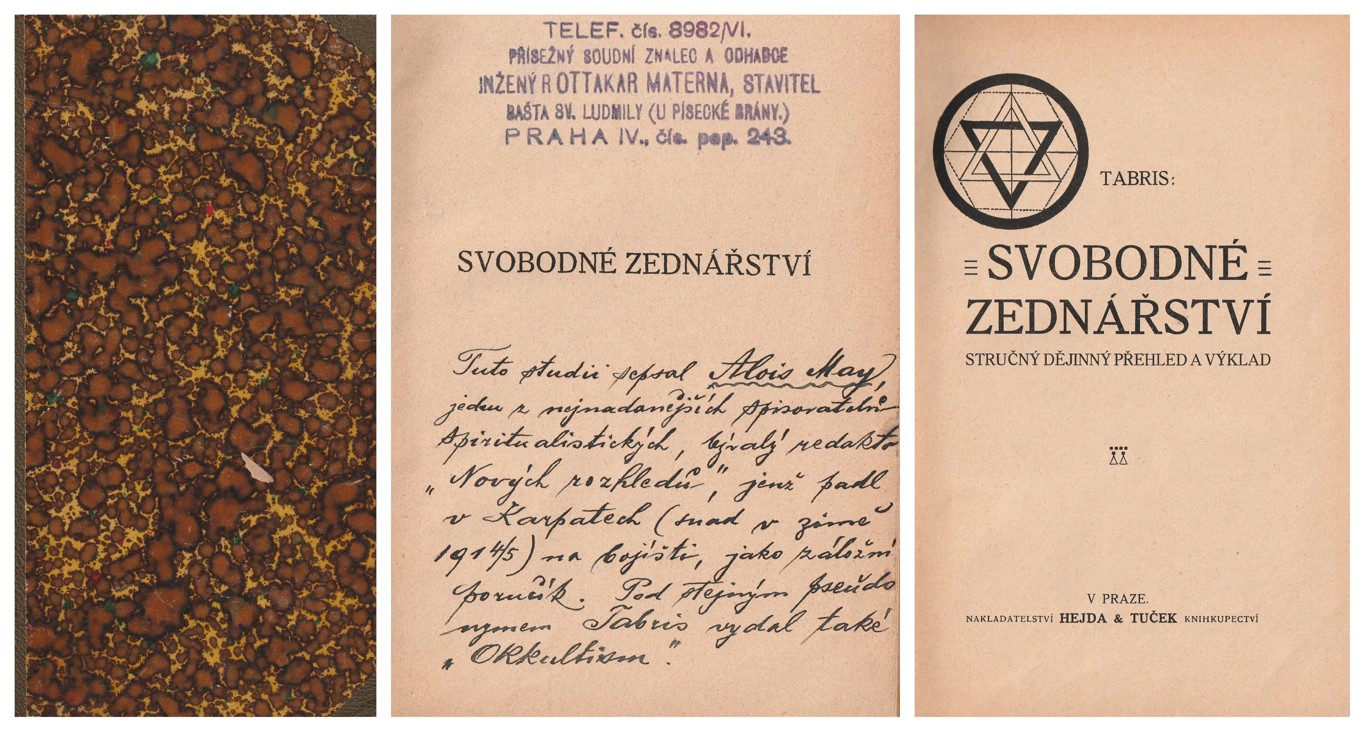 TELEF. čís. 8982/VI.
PŘÍSEŽNÝ SOUDNÍ ZNALEC A ODHADCE
INŽENÝR OTTAKAR MATERNA, STAVITEL
BAŠTA SV. LUDMILY (U PÍSECKÉ BRÁNY.)
PRAHA IV., čís. pop. 243.
SVOBODNÉ ZEDNÁŘSTVÍ
Tuto studii sepsal Alois May,
jeden z nejnadanějších spisovatelů
spiritualistických, bývalý redakto
„Nových rozhledů", jenž padl
v Karpatech (snad v zimě
1914/5) na bojišti, jako záložní
poručík. Pod stejným pseudo
nymem Tabris vydal také
„Okkultism".
TABRIS:
SVOBODNÉ
ZEDNÁŘSTVÍ
STRUČNÝ DĚJINNÝ PŘEHLED A VÝKLAD
V PRAZE.
NAKLADATELSTVÍ HEJDA & TUČEK KNIHKUPECTVÍ